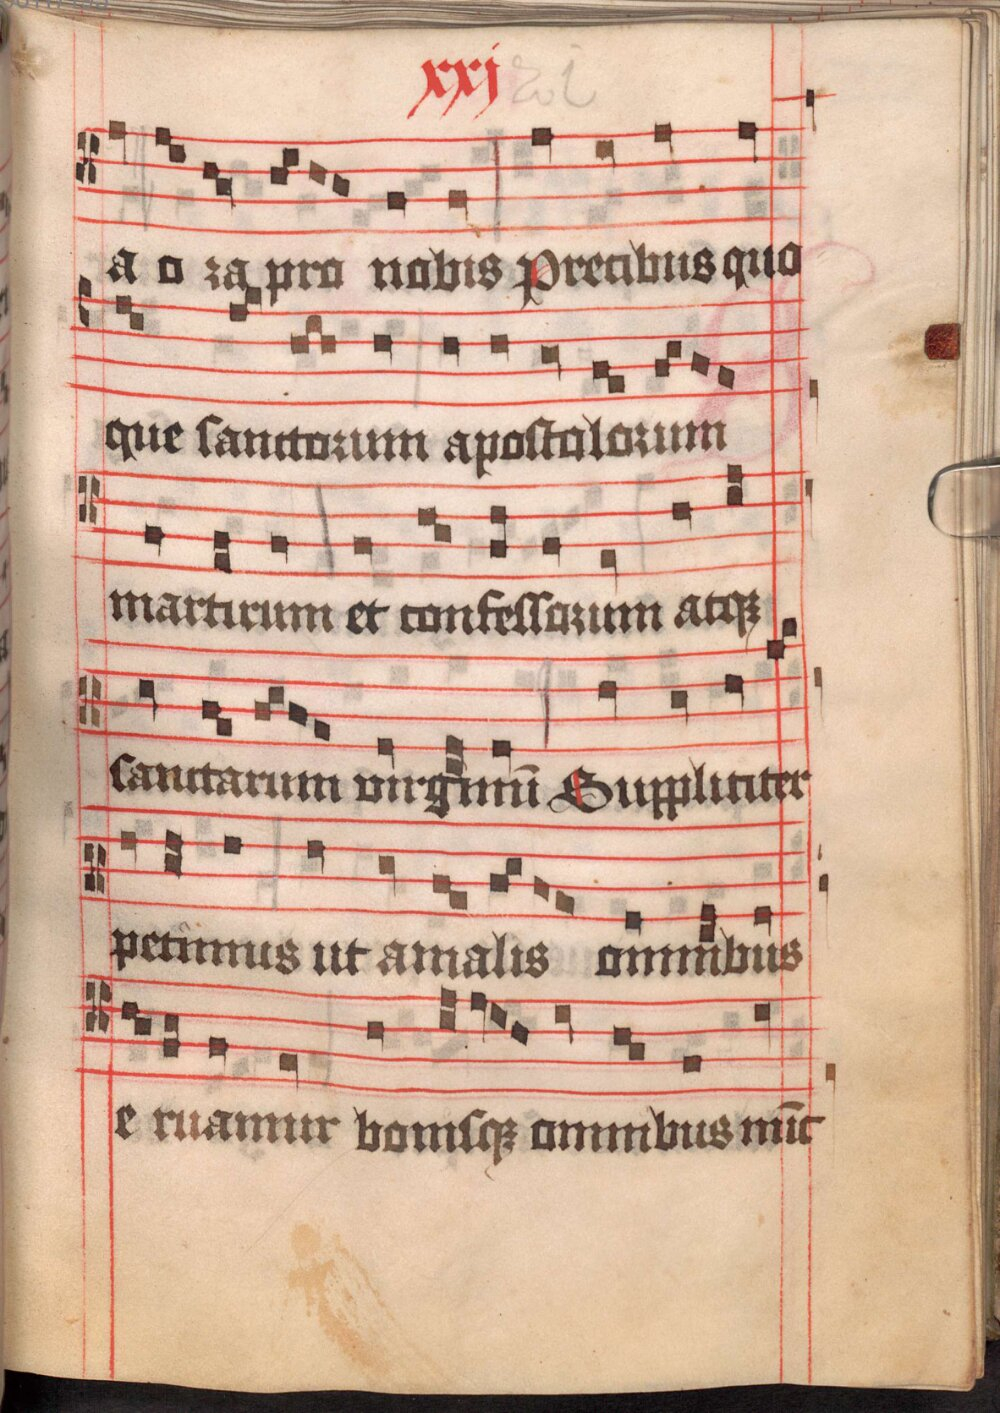 xxj
a o ra pro nobis Precibus quo
que sanctorum apostolorum
martirum et confessorum atqꝫ
sanctarum virginū Suppliciter
petimus ut a malis omnibus
e ruamur bonisqꝫ omnibus nūc